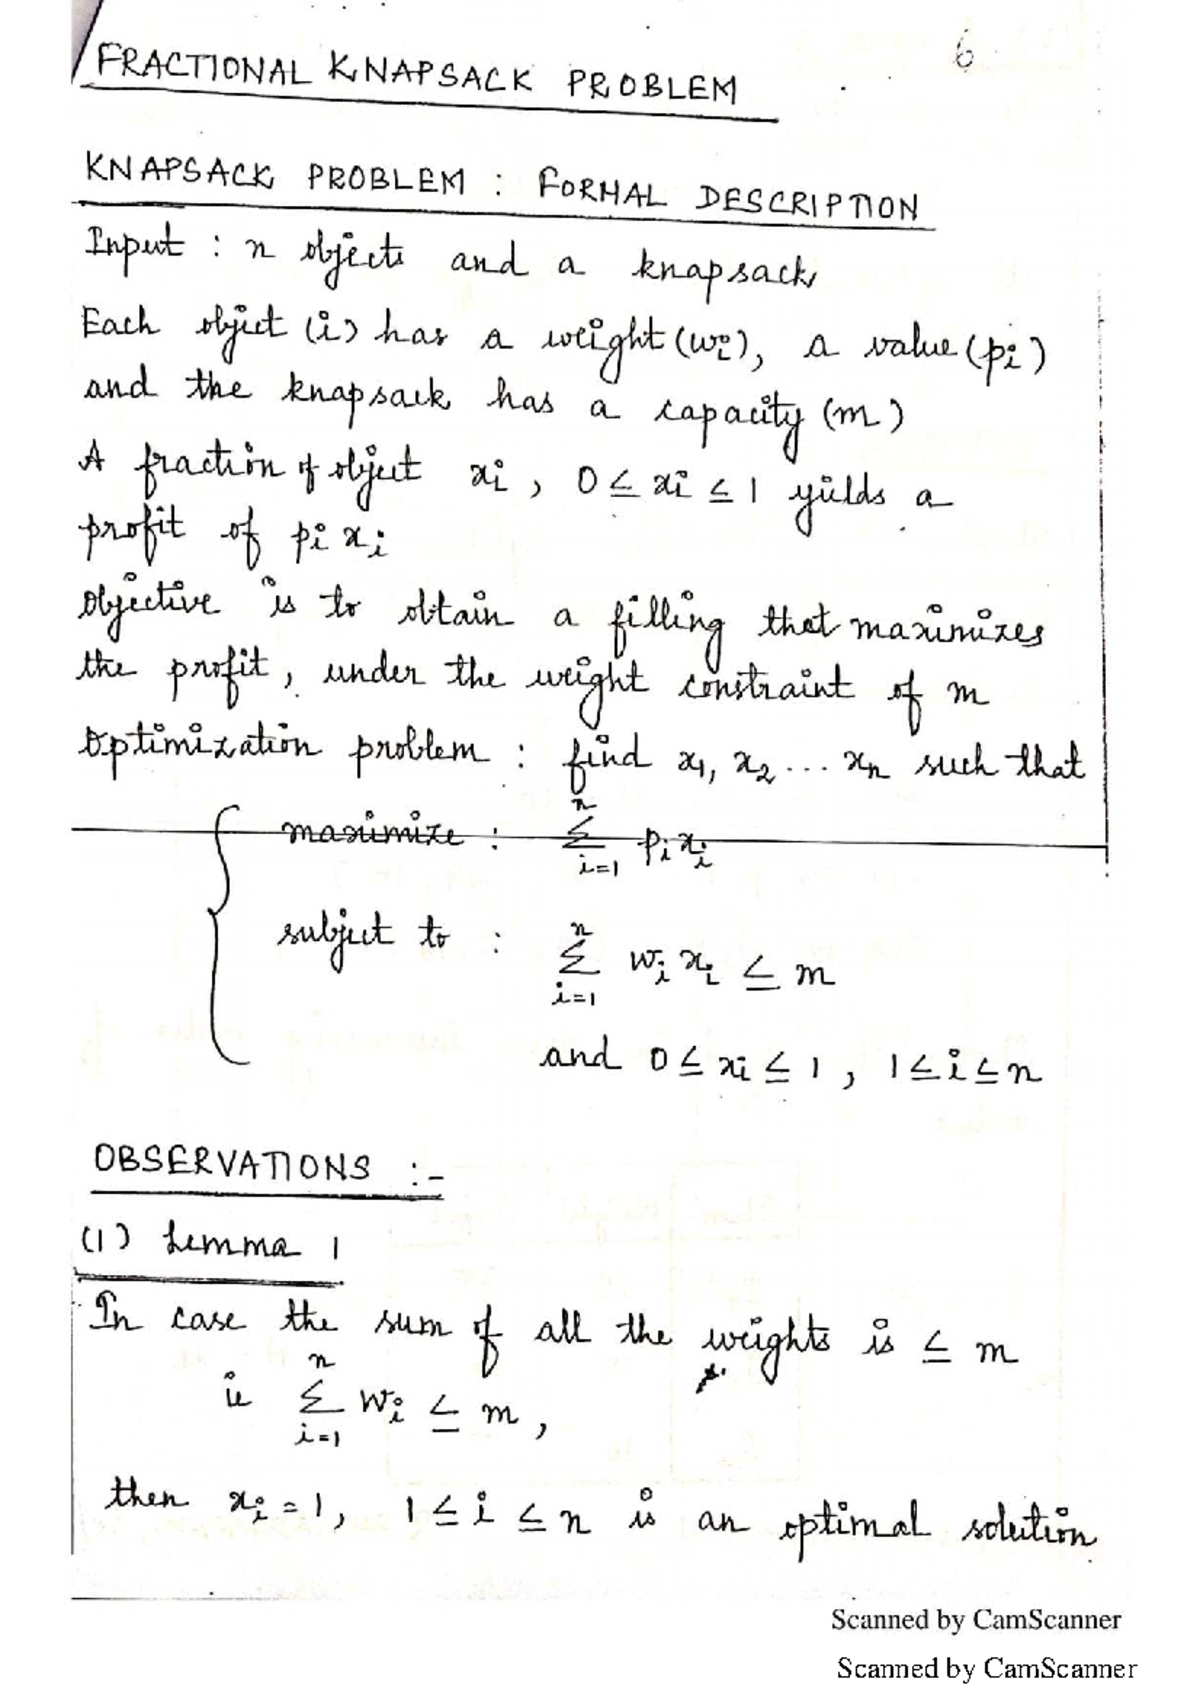 6
FRACTIONAL KNAPSACK PROBLEM
KNAPSACK PROBLEM : FORMAL DESCRIPTION
Input : n objects and a knapsack
Each object (i) has a weight (wi), a value (pi)
and the knapsack has a capacity (m)
A fraction of object xi, 0 ≤ xi ≤ 1 yields a
profit of pi xi
Objective is to obtain a filling that maximizes
the profit, under the weight constraint of m
Optimization problem : find x1, x2 ... xn such that
maximize : n∑i=1 pi xi
subject to : n∑i=1 wi xi ≤ m
and 0 ≤ xi ≤ 1, 1 ≤ i ≤ n
OBSERVATIONS :-
(1) Lemma 1
In case the sum of all the weights is ≤ m
ie n∑i=1 wi ≤ m,
then xi = 1, 1 ≤ i ≤ n is an optimal solution
Scanned by CamScanner
Scanned by CamScanner